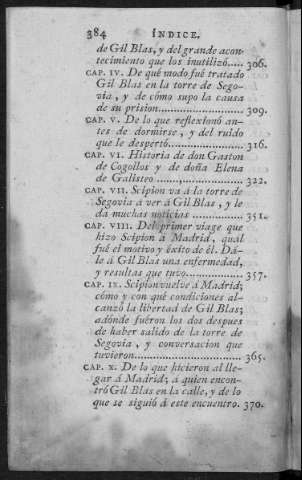 384 ÍNDICE.
de Gil Blas, y del grande acon-
tecimiento que los inutilizó..... 306.
CAP. IV. De qué modo fué tratado
Gil Blas en la torre de Sego-
via, y de cómo supo la causa
de su prision..................... 309.
CAP. V. De lo que reflexionó an-
tes de dormirse, y del ruido
que le despertó................... 316.
CAP. VI. Historia de don Gaston
de Cogollos y de doña Elena
de Galisteo...................... 322.
CAP. VII. Scipion va á la torre de
Segovia á ver á Gil Blas, y le
da muchas noticias .............. 351.
CAP. VIII. Del primer viage que
hizo Scipion á Madrid, quál
fué el motivo y éxîto de él. Da-
le á Gil Blas una enfermedad,
y resultas que tuvo............... 357.
CAP. IX. Scipion vuelve á Madrid;
cómo y con qué condiciones al-
canzó la libertad de Gil Blas;
adónde fuéron los dos despues
de haber salido de la torre de
Segovia, y conversacion que
tuvieron.......................... 365.
CAP. X. De lo que hicieron al lle-
gar á Madrid; á quien encon-
tró Gil Blas en la calle, y de lo
que se siguió á este encuentro. 370.